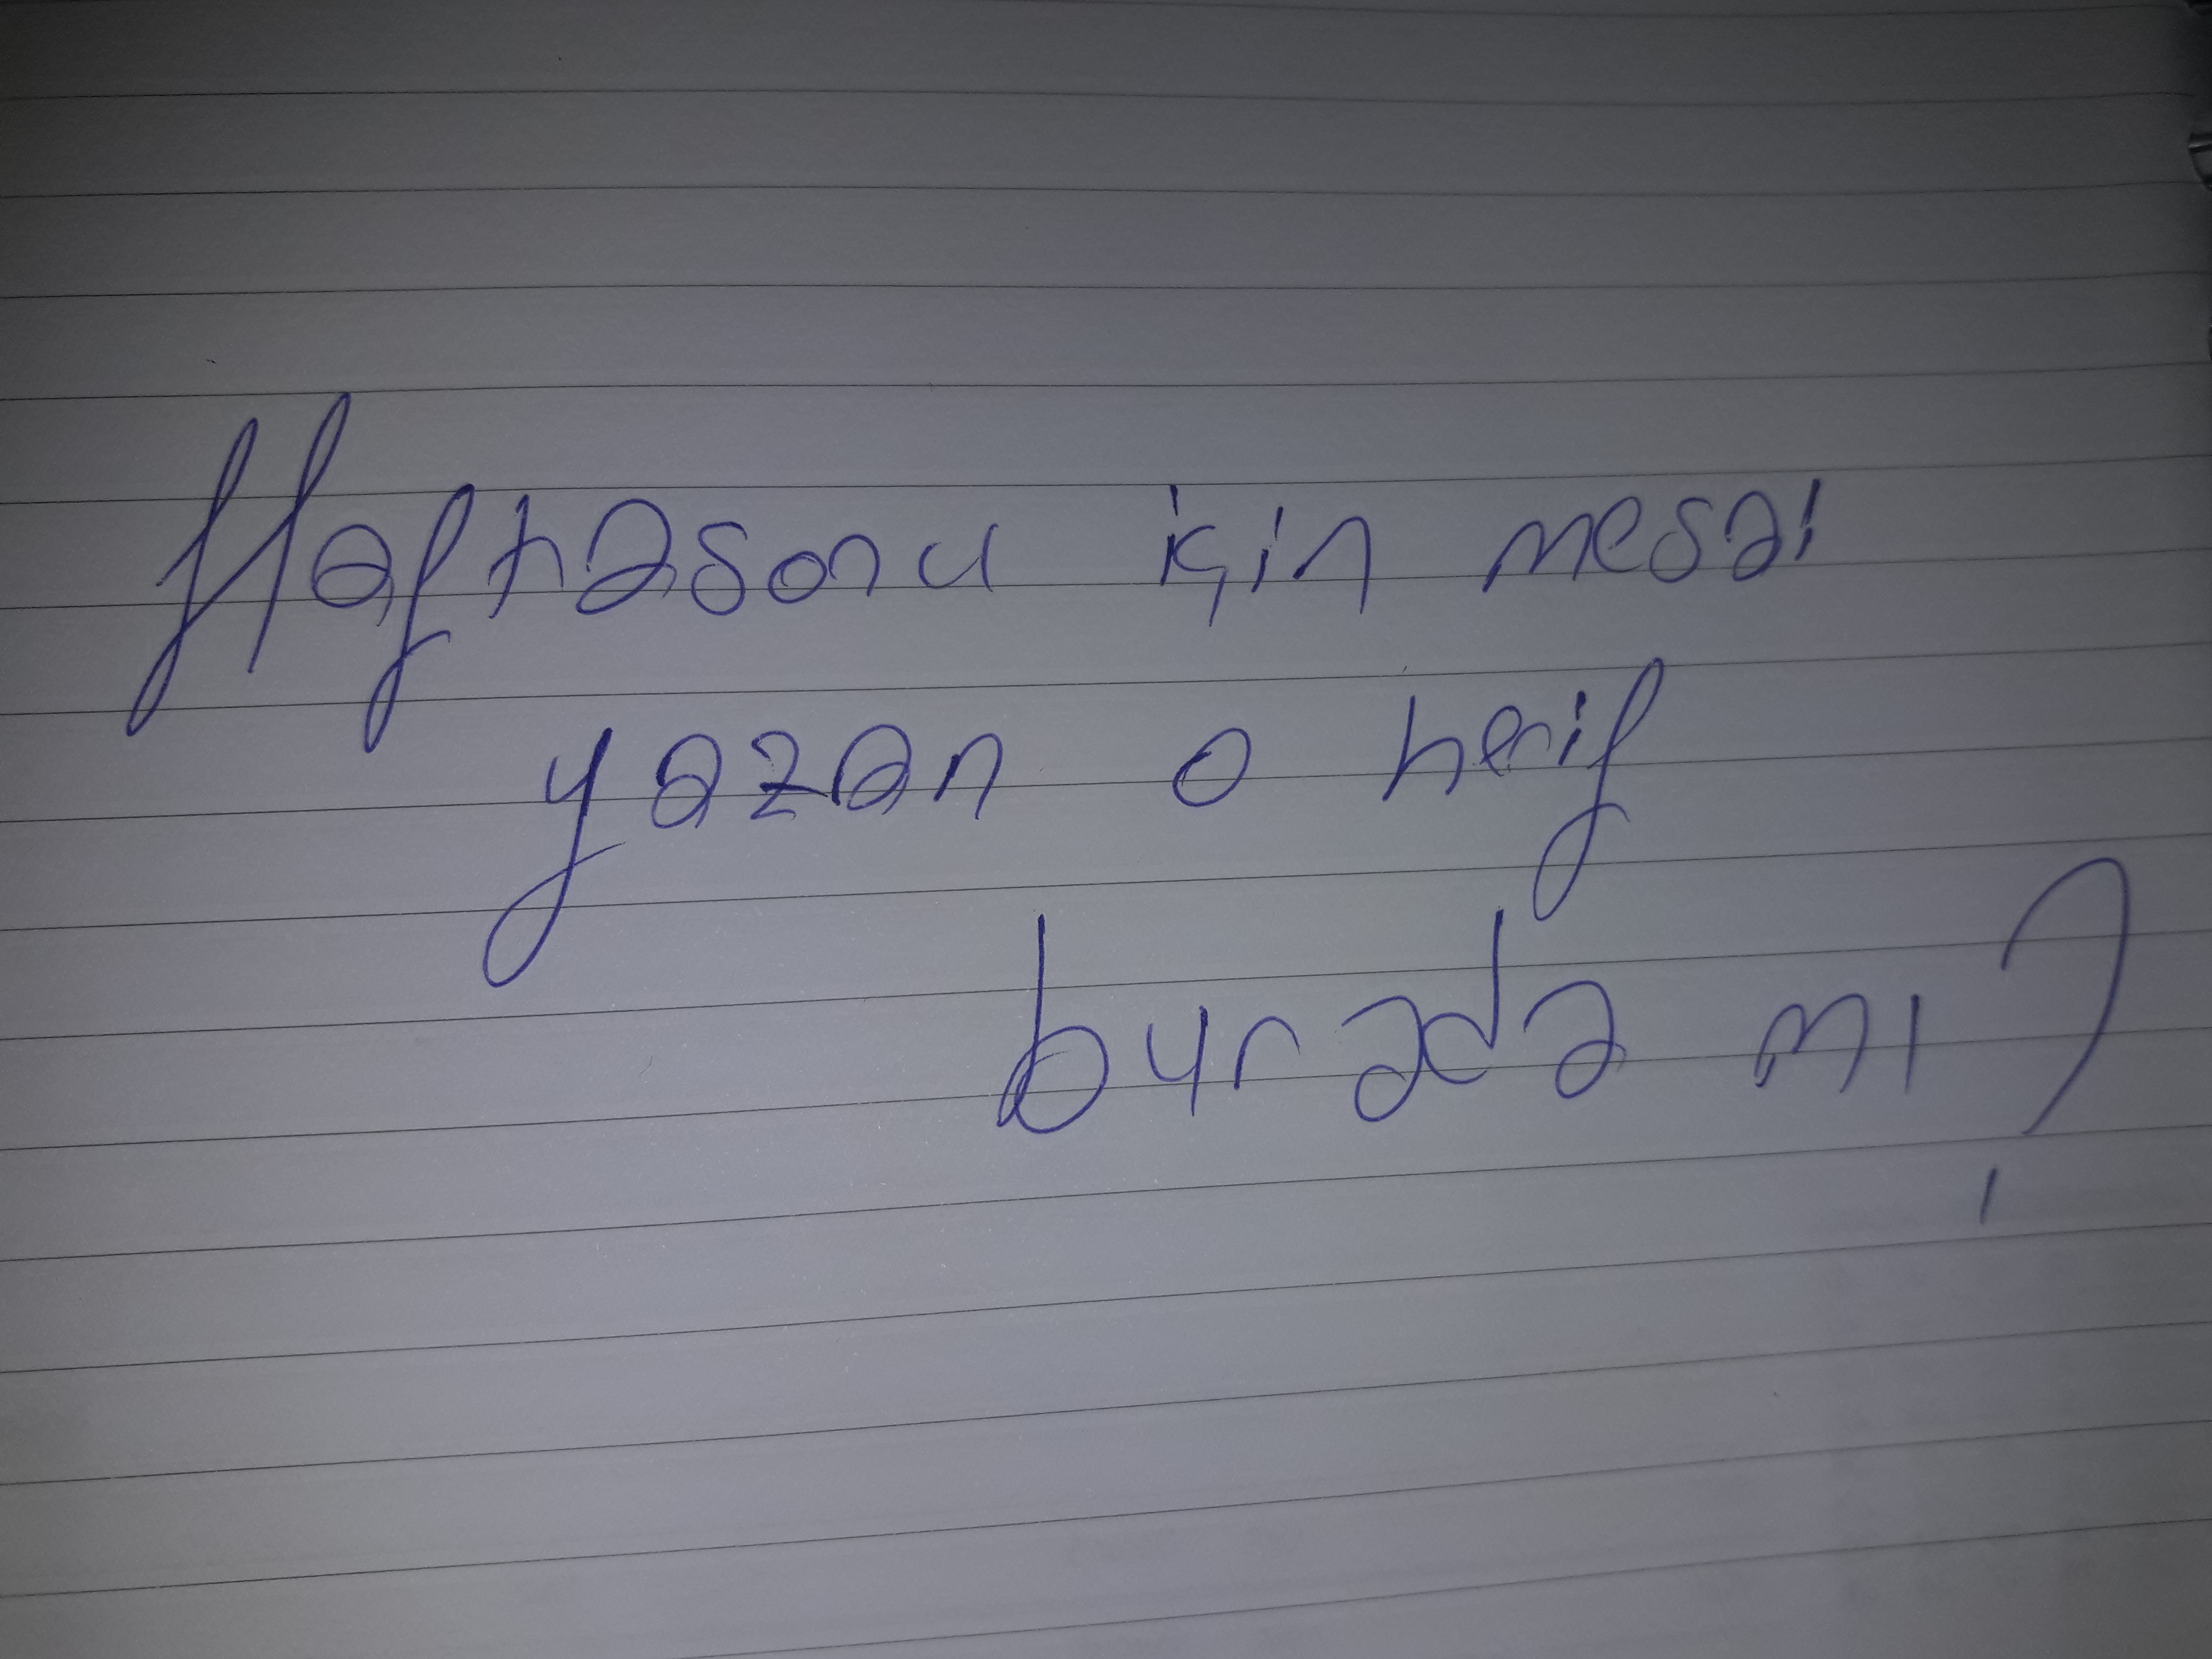 Haftasonu için mesai
yazan o herif
burada mı?